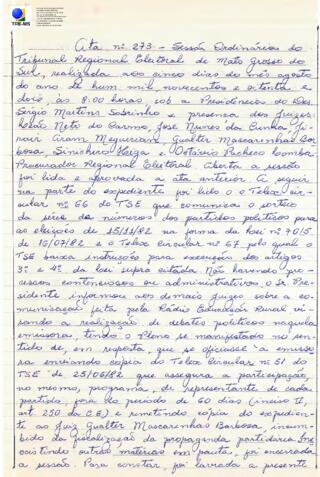 TRE-MS
Ata nº 273 - Sessão Ordinária do
Tribunal Regional Eleitoral de Mato Grosso do
Sul, realizada aos cinco dias do mês agosto
do ano de hum mil novecentos e oitenta e
dois, às 8:00 horas sob a Presidência do Des.
Sérgio Martins Sobrinho e presença dos Juízes
Neto do Carmo, José Nunes da Cunha,
Aram Meguerian, Gualter Mascarenhas Bar
bosa, e Otávio Pacheco Lomba,
Procurador Regional Eleitoral. Aberta a sessão
foi lida e aprovada a ata anterior. A seguir
na parte do expediente foi lido o Telex cir
cular nº 66 do TSE que comunica o sorteio
da série de números dos partidos políticos para
as eleições de 15/11/82 na forma da lei nº 7015
de 16/07/82 e o Telex Circular nº 67 pelo qual o
TSE baixa instrução para execução dos artigos
3º e 4º da lei supra citada. Não havendo pro
cessos contenciosos ou administrativos, o Sr. Pre
sidente informou aos demais juízes sobre a co
municação feita pela Rádio Educação Rural vi
sando a realização de debates políticos naquela
emissora, tendo o Pleno se manifestado no sen
tido de, em resposta, que se oficiasse a emisso
ra enviando cópia do Telex Circular nº 51 do
TSE de 25/06/82 que assegura a participação,
no mesmo, programa, de representante de cada
partido, fora do período de 60 dias (inciso II,
art. 250 da CE) e remetendo cópia do expedien
te ao Juiz Gualter Mascarenhas Barbosa, incum
bido da fiscalização da propaganda partidária. Ine
xistindo outras matérias em pauta, foi encerrada
a sessão. Para constar, foi lavrada a presente